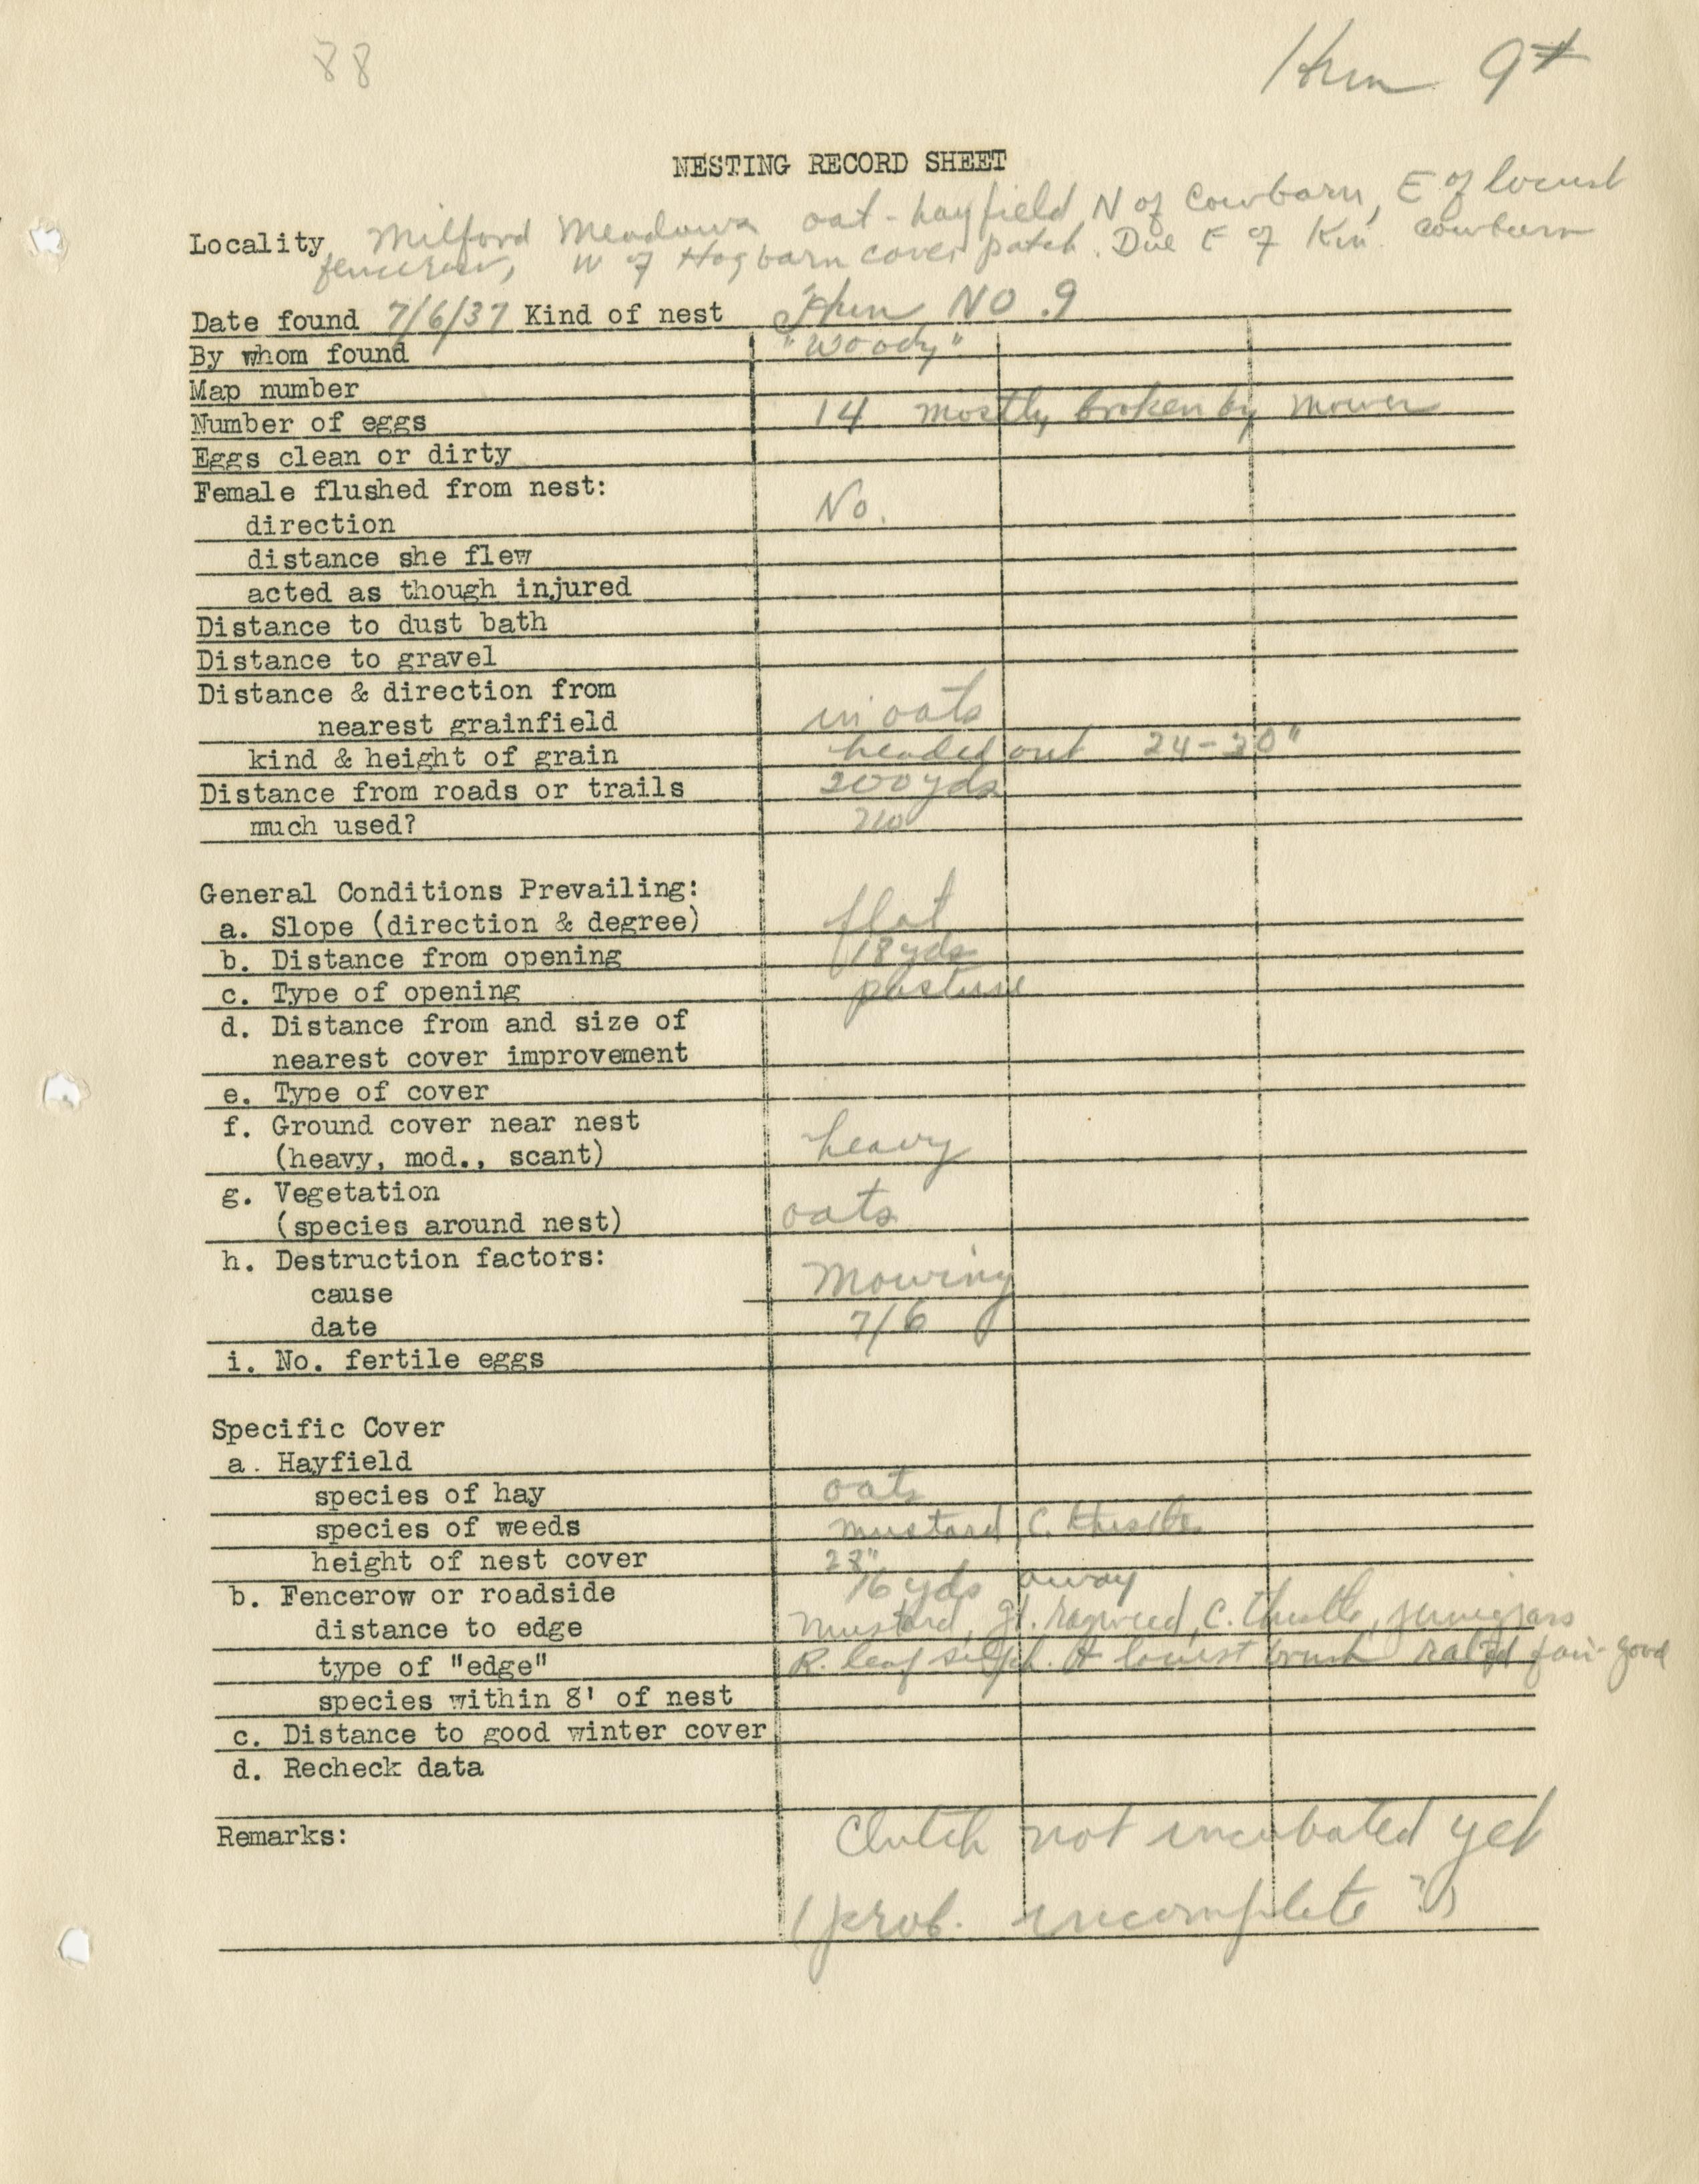 88
Hun 9
NESTING RECORD SHEET
Locality Milford Meadows oat-hayfield, N of Cowbarn, E of locust
fencerow, W of Hogbarn cover patch. Due E of Km. Cowbarn
Date found 7/6/37 Kind of nest Hun NO. 9
By whom found "Woody"
Map number
Number of eggs 14 mostly broken by mower
Eggs clean or dirty
Female flushed from nest:
direction No.
distance she flew
acted as though injured
Distance to dust bath
Distance to gravel
Distance & direction from
nearest grainfield in oats
kind & height of grain headed out 24-
Distance from roads or trails 200 yds
much used? no
General Conditions Prevailing:
a. Slope (direction & degree) flat
b. Distance from opening 18 yds
c. Type of opening pasture
d. Distance from and size of
nearest cover improvement
e. Type of cover
f. Ground cover near nest
(heavy, mod., scant) heavy
g. Vegetation
(species around nest) oats
h. Destruction factors:
cause Mowing
date 7/6
i. No. fertile eggs
Specific Cover
a. Hayfield
species of hay oats
species of weeds mustard, C. thistle
height of nest cover 23"
b. Fencerow or roadside 16 yds away
distance to edge Mustard, gt. ragweed, C. thistle, junegrass
type of "edge" R. leaf silph. locust brush rated fair-good
species within 8' of nest
c. Distance to good winter cover
d. Recheck data
Remarks: Clutch not incubated yet
(prob. incomplete ?)